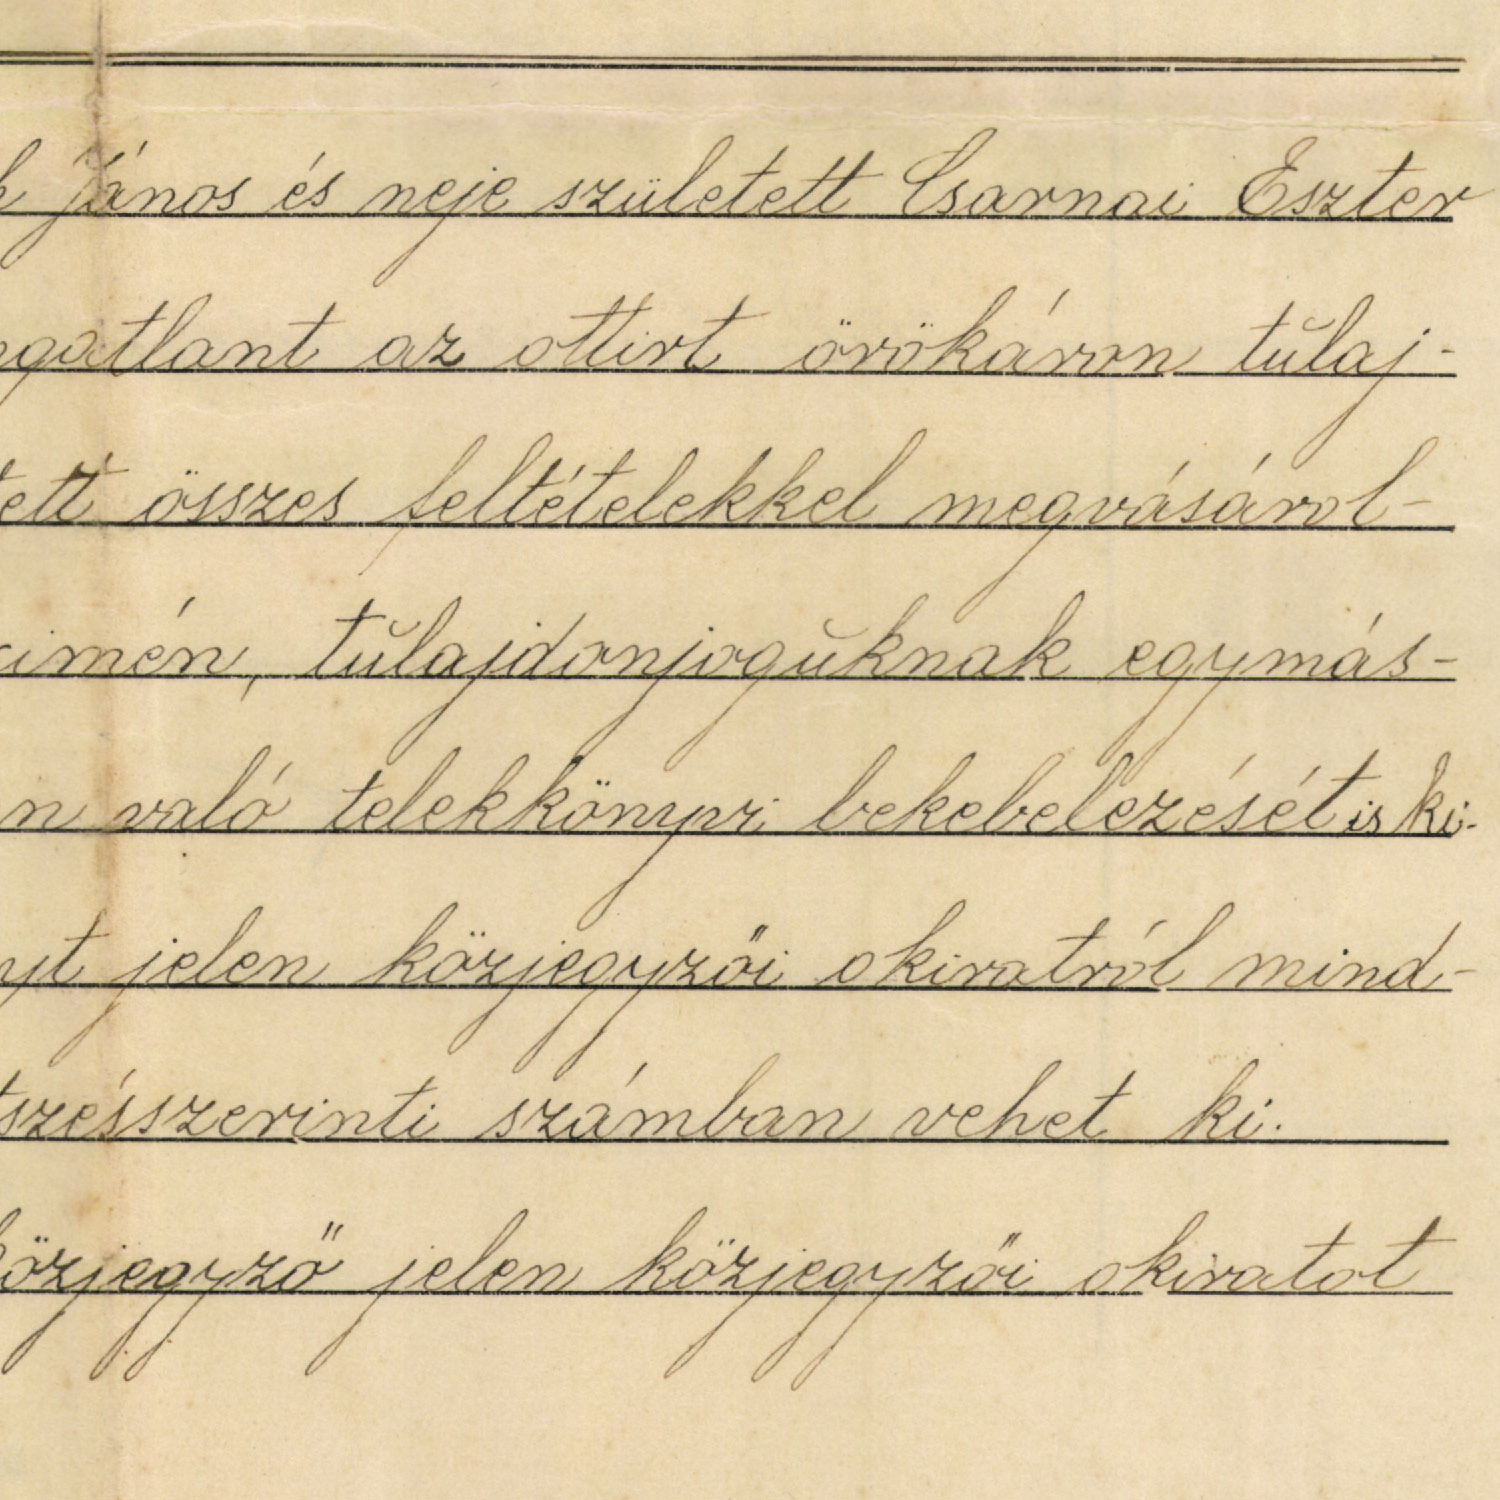 k János és neje született Csarnai Eszter
ngatlant az ottirt örökáron tŭlaj-
tett összes feltételekkel megvásárol-
cimén, tŭlajdonjogŭknak egymás-
n való telekkönyvi bekebelezését is ki-
nyt jelen közjegyzői okiratról mind-
tszésszerinti számban vehet ki.
közjegyző jelen közjegyzői okiratot